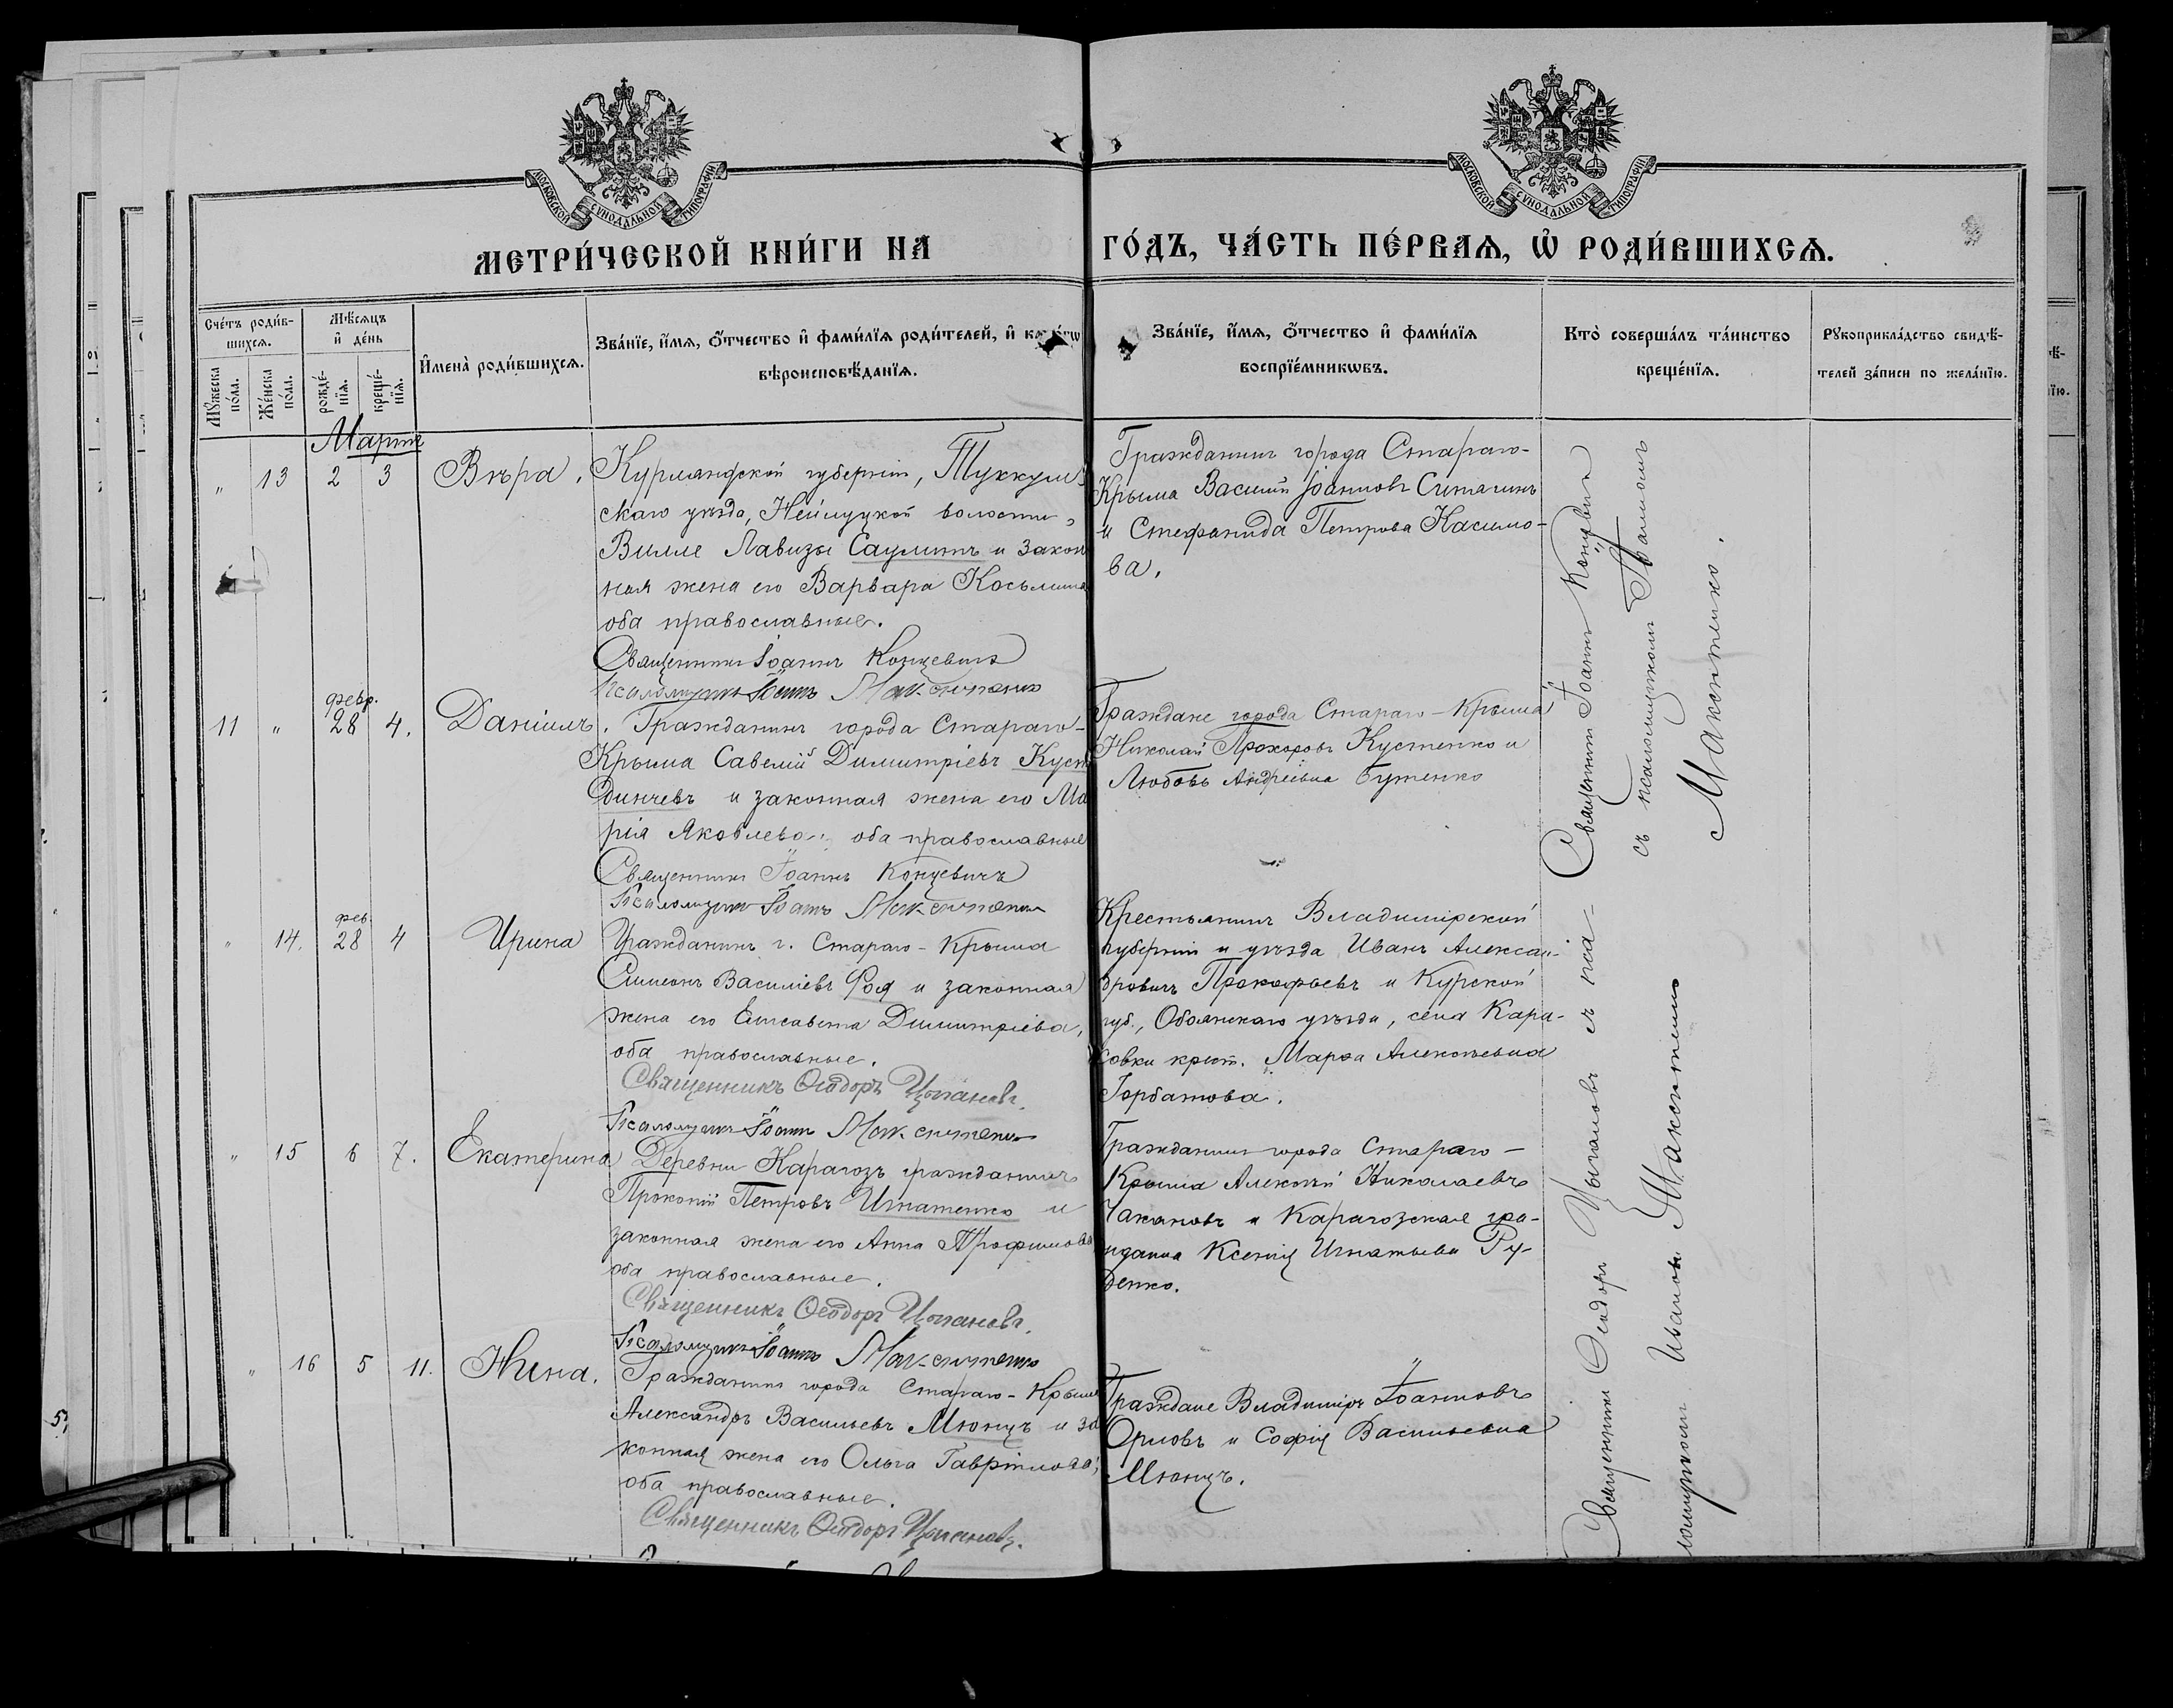 МОСКОВСКОЙ СУНОДАЛЬНОЙ ТИПОГРАФІИ
МОСКОВСКОЙ СУНОДАЛЬНОЙ ТИПОГРАФІИ
МЕТРИ́ЧЕСКОЙ КНИ́ГИ НА ГО́ДЪ, ЧА́СТЬ ПЕ́РВАѦ, Ѡ҆ РОДИ́ВШИХСѦ.
Сче́тъ роди́в-
шихсѧ.
Мꙋ́жеска по́ла.
Же́нска по́ла.
Мѣ́сѧцъ
и҆ де́нь
рожде́-
нїѧ.
креще́-
нїѧ.
И҆мена̀ роди́вшихсѧ.
Зва́нїе, и҆́мѧ, ѻ҆́тчество и҆ фами́лїѧ роди́телей, и҆
вѣроисповѣ́данїѧ.
Зва́нїе, и҆́мѧ, ѻ҆́тчество и҆ фами́лїѧ
воспрїе́мникѡвъ.
Кто̀ соверша́лъ та́инство
креще́нїѧ.
Рꙋкоприкла́дство свидѣ́-
телей за́писи по жела́нїю.
Мартъ
" 13 2 3 Вѣра.
Курляндской губерніи, Туккум-
скаго уѣзда, Нейлуцкой волости,
Вилле Лавизы Саулитъ и закон
ная жена его Варвара Косьмина
оба православные.
Священникъ Іоаннъ Концевичъ
Псаломщикъ Іоаннъ Максименко
Гражданинъ города Стараго-
Крыма Василій Іоанновъ Ситагинъ
и Стефанида Петрова Касимо-
ва.
11 " февр. 28 4. Даніилъ.
Гражданинъ города Стараго-
Крыма Савелій Димитріевъ Куст
динчевъ и законная жена его Ма
рія Яковлева, оба православные
Священникъ Іоаннъ Концевичъ
Псаломщикъ Іоаннъ Максименко
Граждане города Стараго-Крыма
Николай Прохоровъ Кустенко и
Любовь Андреевна Бутенко
" 14. фев. 28 4 Ирина
Гражданинъ г. Стараго-Крыма
Симеонъ Василіевъ Фоя и законная
жена его Елисавета Димитріева,
оба православные.
Священникъ Ѳеодоръ Цыгановъ.
Псаломщикъ Іоаннъ Максименко
Крестьянинъ Владимірской
губерніи и уѣзда Иванъ Алексан-
дровичъ Прокофьевъ и Курской
губ., Обоянскаго уѣзда, села Кара-
совки крест. Марѳа Алексѣевна
Горбатова.
" 15 6 7. Екатерина
Деревни Карагозъ гражданинъ
Прокопій Петровъ Игнатенко и
законная жена его Анна Трофимова
оба православные.
Священникъ Ѳеодоръ Цыгановъ.
Псаломщикъ Іоаннъ Максименко
Гражданинъ города Стараго-
Крыма Алексѣй Николаевъ
Чакановъ и Карагозская гра-
жданка Ксенія Игнатьева Ру-
денко.
" 16 5 11. Нина.
Гражданинъ города Стараго-Крыма
Александръ Васильевъ Мюнцъ и за
конная жена его Ольга Гавріилова,
оба православные.
Священникъ Ѳеодоръ Цыгановъ.
Граждане Владиміръ Іоанновъ
Орловъ и Софія Васильевна
Мюнцъ.
Священникъ Іоаннъ Концевичъ
съ псаломщикомъ Іоанномъ
Максименко.
Священникъ Ѳеодоръ Цыгановъ съ пса-
ломщикомъ Иваномъ Максименко